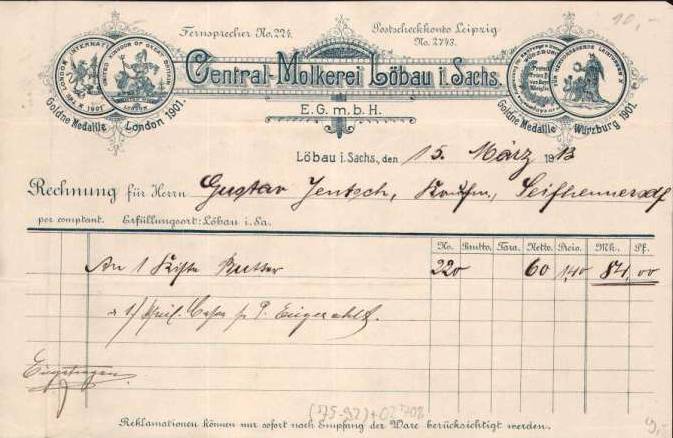 Fernsprecher No. 224.
Postscheckkonto Leipzig
No. 2743.
10,-
THE LONDON INTERNATI
1901
UNITED KINGDOM OF GREAT
LONDON
Goldne Medaille London 1901.
Central-Molkerei Löbau i. Sachs.
E.G.m.b.H.
Goldne Medaille Würzburg 1901.
Löbau i. Sachs., den 15. März 1913
Rechnung für Herrn Gustav Jentsch, Kaufm., Seifhennersdf
per comptant. Erfüllungsort: Löbau i. Sa.
No. Brutto. Tara. Netto. Preis. Mk. Pf.
An 1 Kiste Butter 220 60 1,40 84,00
Eingetragen
Reklamationen können nur sofort nach Empfang der Ware berücksichtigt werden.